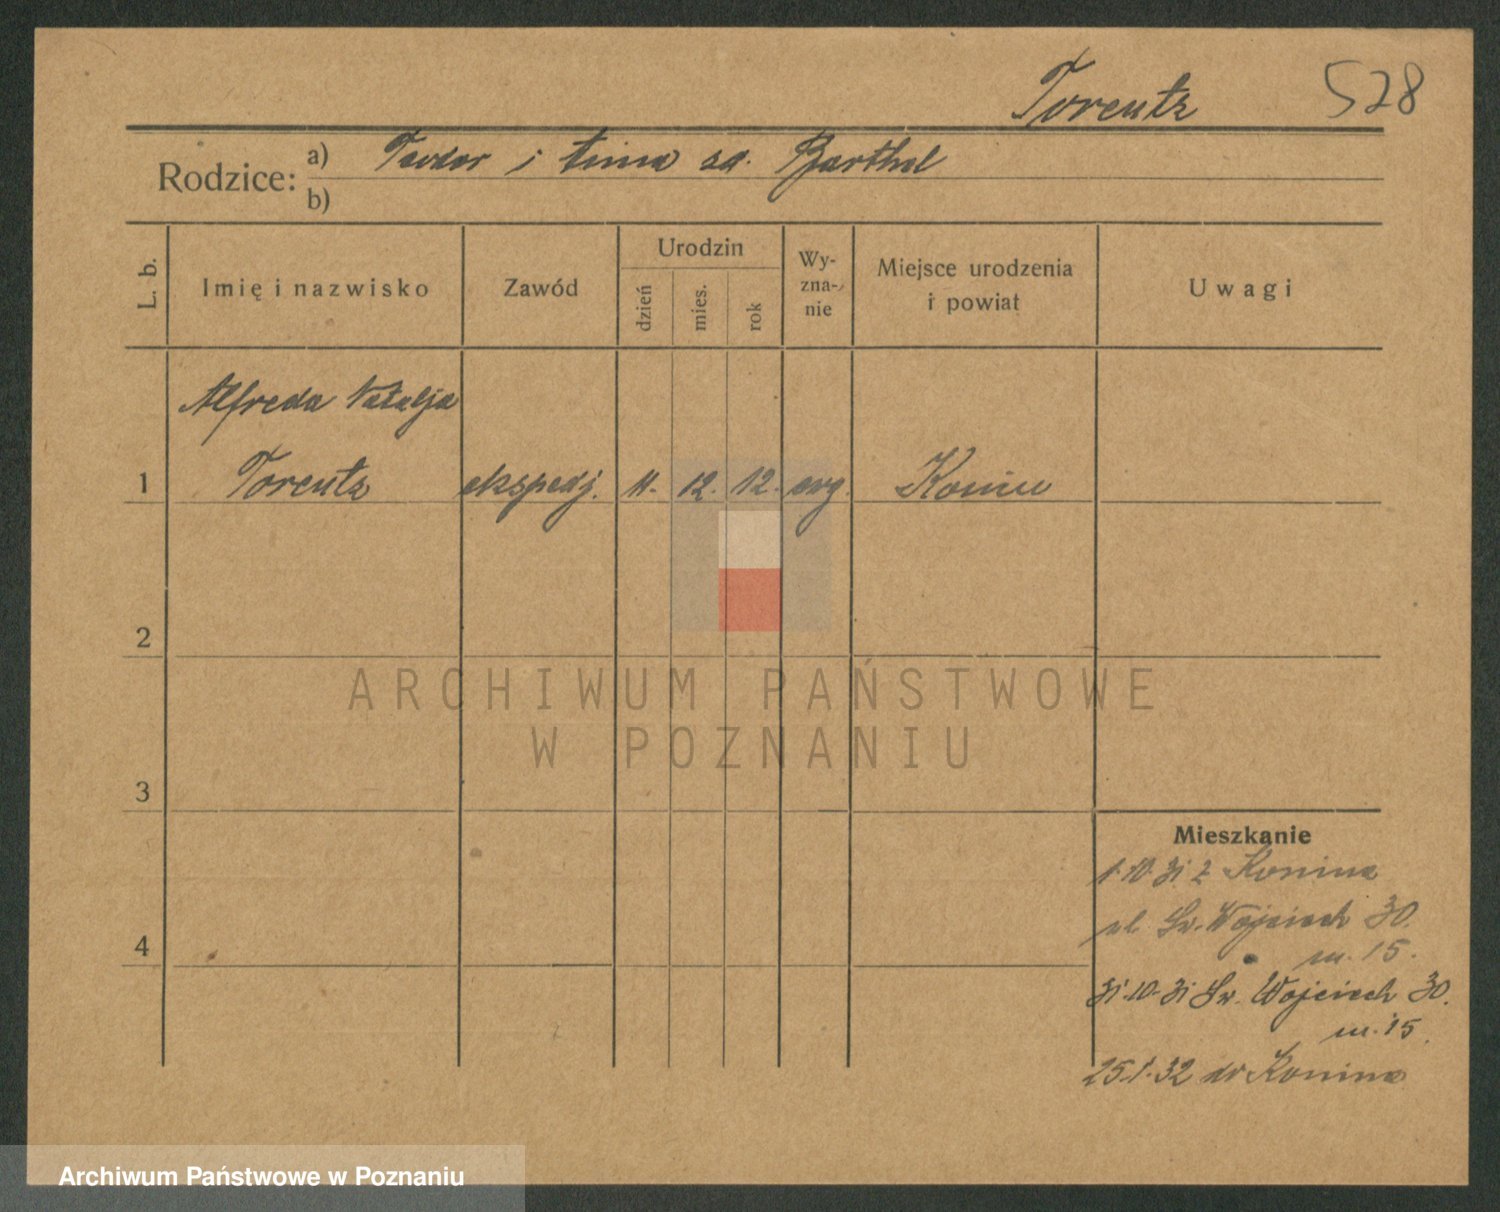 Torentz 528
Rodzice: a) Teodor i Anna zd. Barthel
b)
L. b. Imię i nazwisko Zawód Urodzin dzień mies. rok Wy-zna-nie Miejsce urodzenia i powiat Uwagi
Alfreda Natalja
1 Torentz ekspedj. 11. 12. 12. ewg. Konin
2
ARCHIWUM PAŃSTWOWE
W POZNANIU
3
Mieszkanie
1.10.31 z Konina
ul. Św. Wojciech 30.
m. 15.
4
31.10.31 Św. Wojciech 30.
m. 15.
25.1.32 do Konina
Archiwum Państwowe w Poznaniu